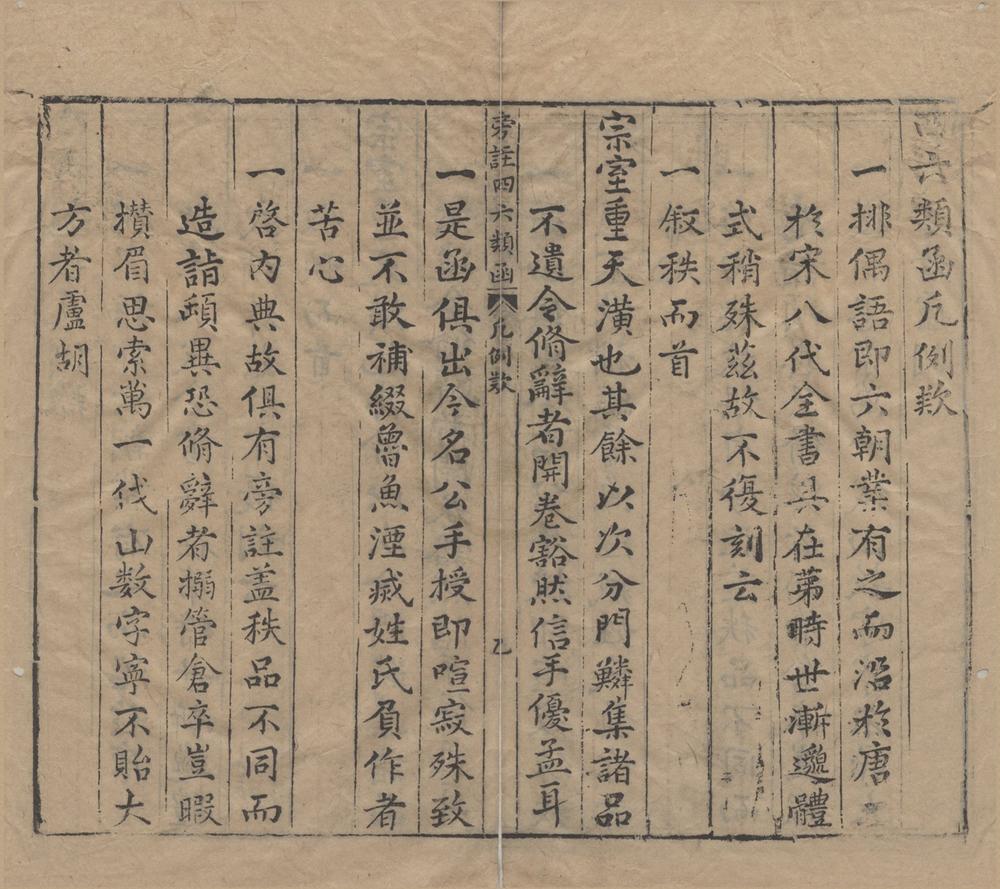 四六類函凡例欵
一排偶語即六朝業有之而沿扵唐
扵宋八代全書具在苐時世漸邈體
式稍殊茲故不復刻云
一叙秩而首
宗室重天潢也其餘以次分門鱗集諸品
不遺令脩辭者開卷豁然信手優孟耳
旁註四六類函 凡例欵 乙
一是函俱出今名公手授即喧寂殊致
並不敢補綴魯魚湮烕姓氏負作者
苦心
一啓內典故俱有旁註盖秩品不同而
造詣頗異恐脩辭者搦管倉卒豈暇
攅眉思索萬一伐山数字寧不貽大
方者盧胡